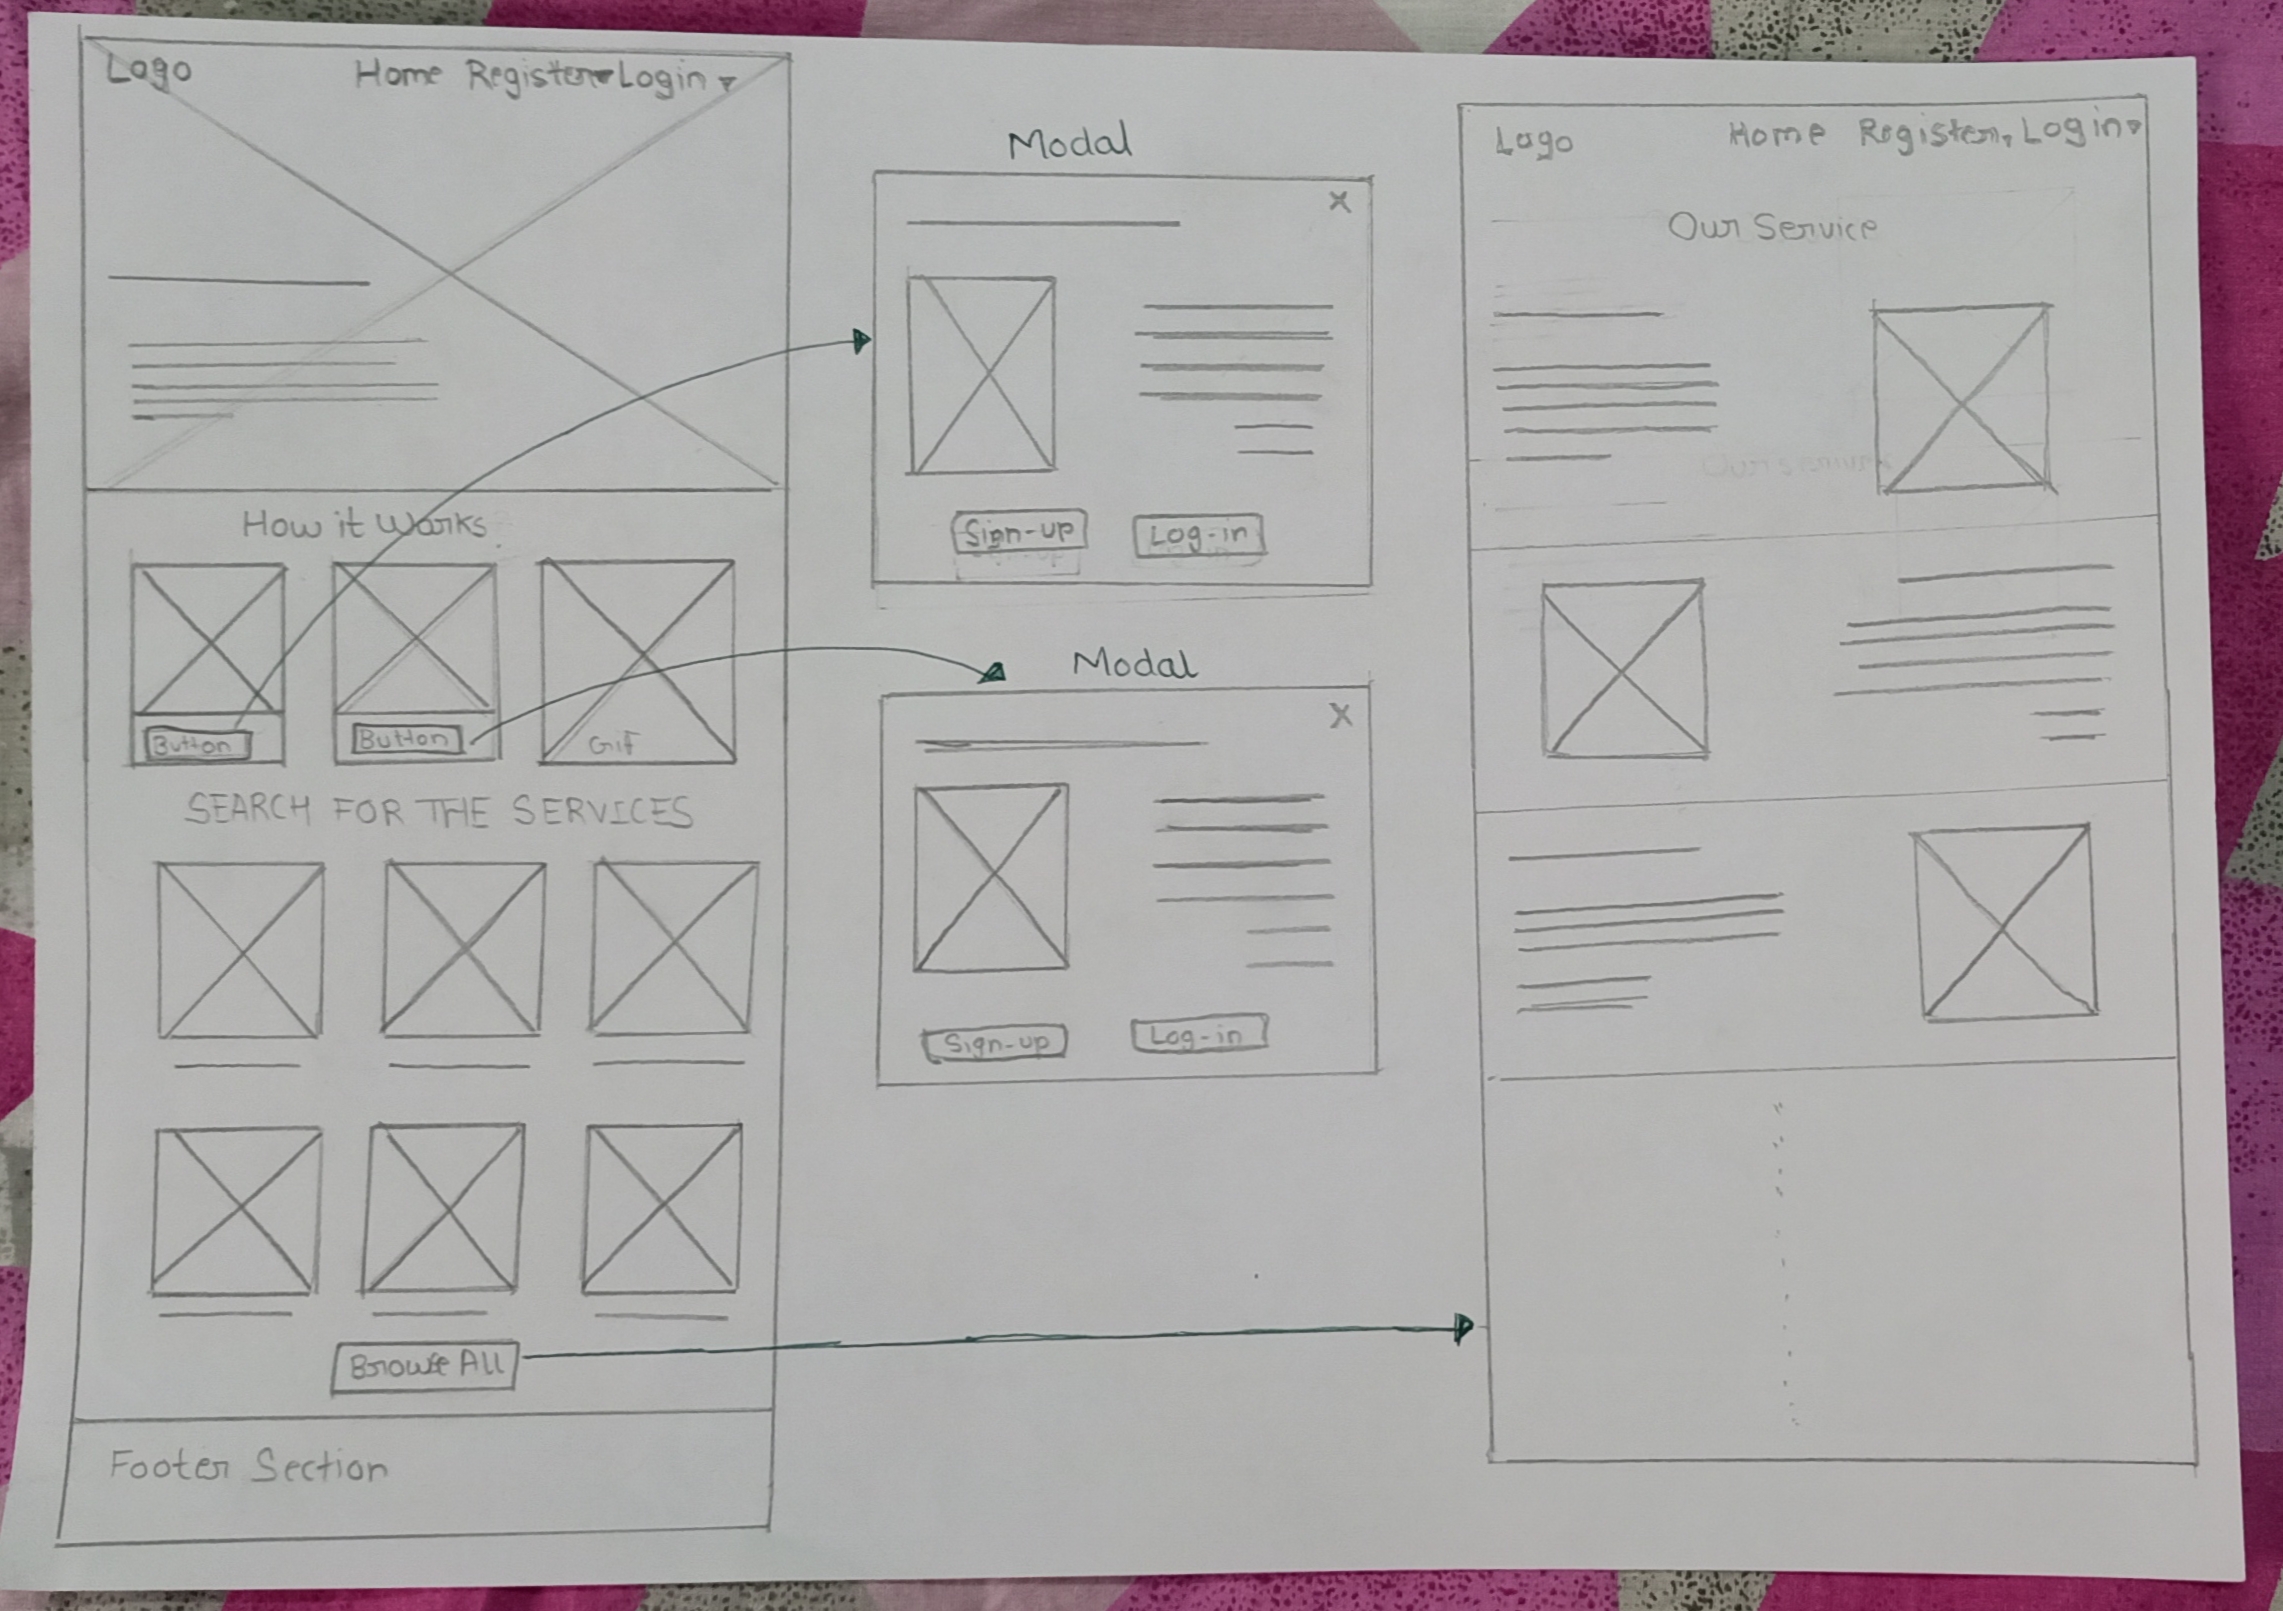 Logo Home Register Login
How it Works
Button Button GIF
SEARCH FOR THE SERVICES
Browse All
Footer Section
Modal
X
Sign-up Log-in
Modal
X
Sign-up Log-in
Logo Home Register Login
Our Service